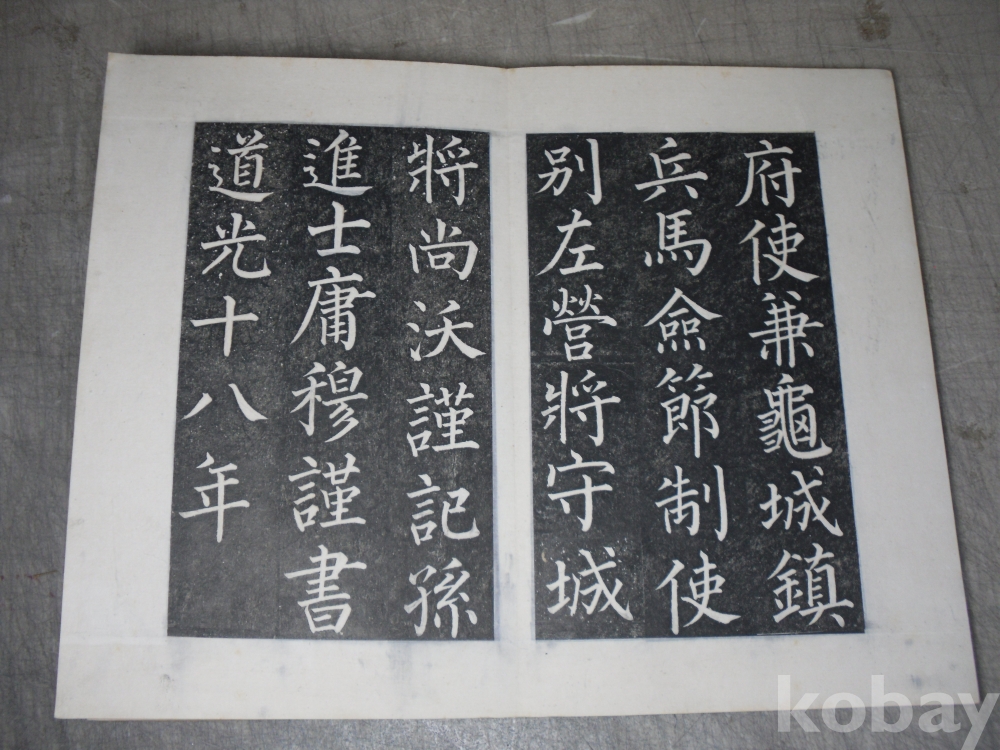 府使兼龜城鎮
兵馬僉節制使
別左營將守城
將尚沃謹記孫
進士庸穆謹書
道光十八年
kobay